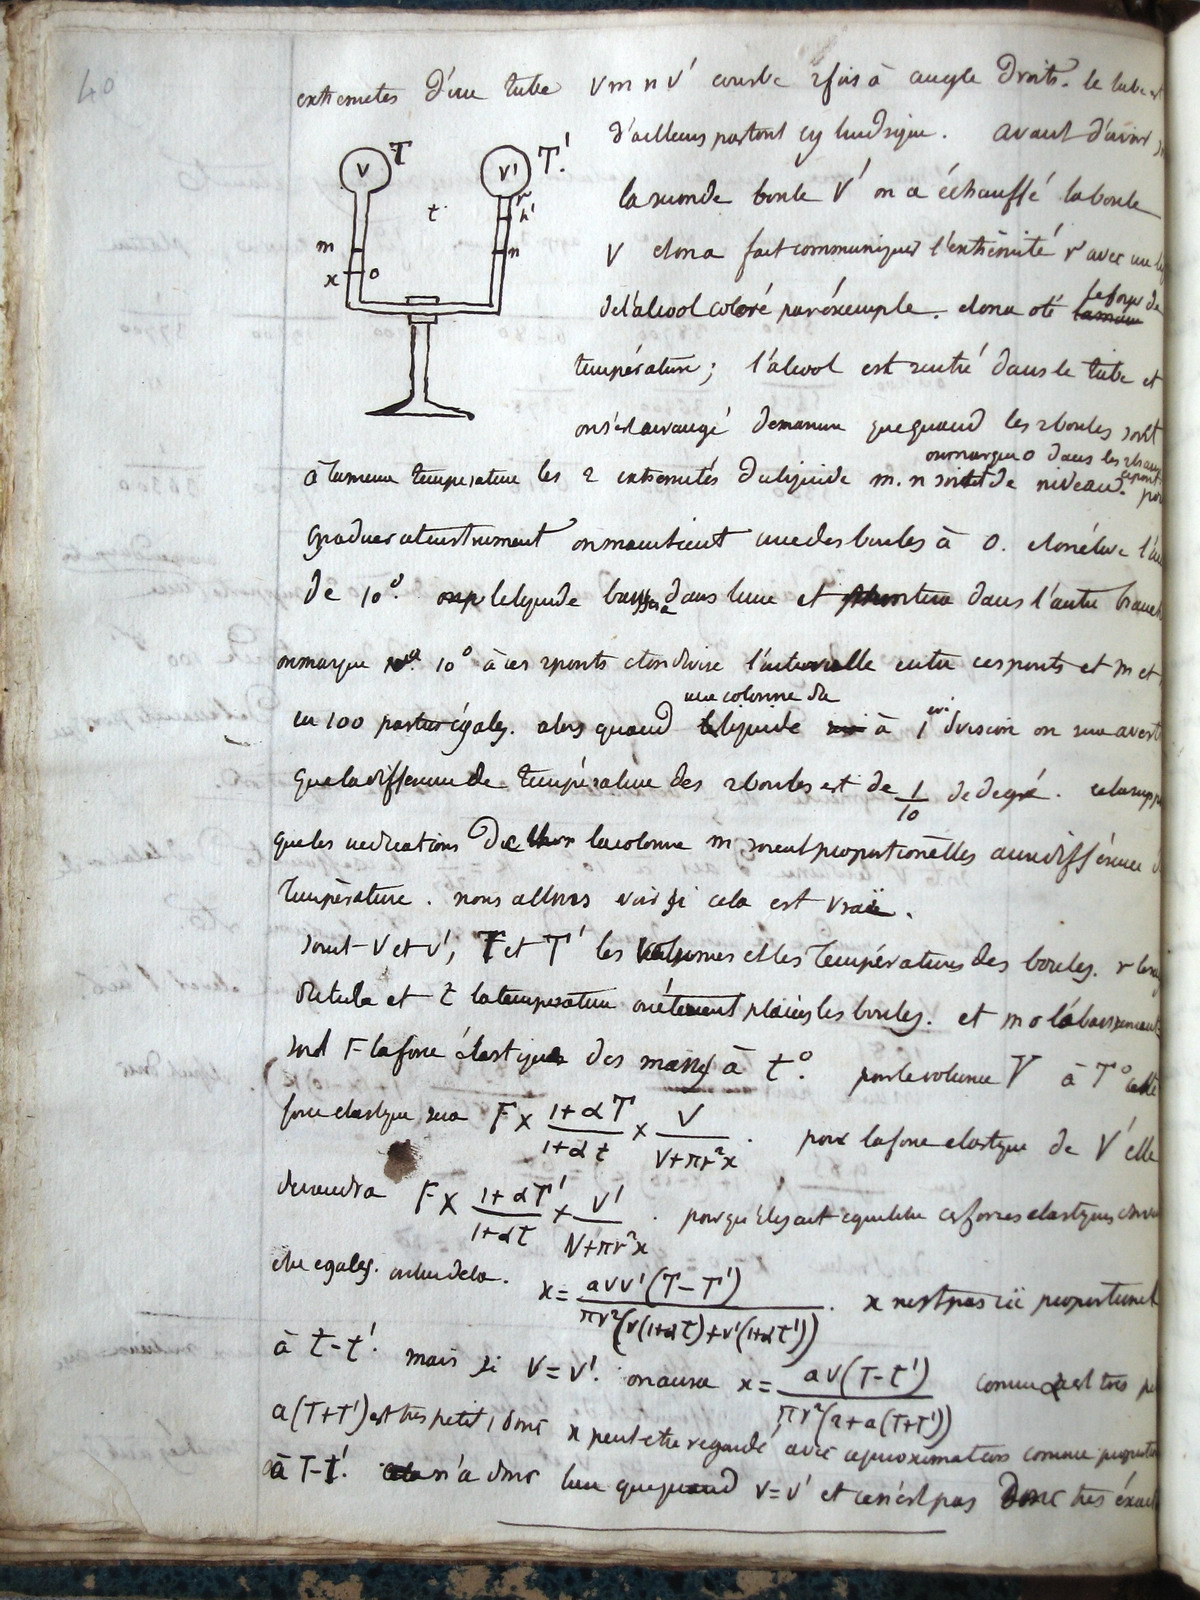 40
extremetés d'un tube v m n v' courbé 2 fois à angle droits. le tube
d'ailleurs partout cylindrique. avant d'avoir
la seconde boule V' on a échauffé la boule
V et on a fait communiquer l'extrémité r avec un
V T V' T'.
t r h'
m n
x o
de l'alcool coloré par éxemple. et on a oté le foyer de
température; l'alcool est rentré dans le tube et
on s'est arrangé de manière que quand les 2 boules sont
on marque o dans les 2
à la meme température les 2 extremités du liquide m. n soient de niveau.
graduer cet instrument on maintient une des boules à 0. et on élève l'
de 10°. le liquide baisse dans l'une et montera dans l'autre
on marque 10° à ces 2 points et on divise l'intervalle entre ces points et m et
une colonne du
en 100 parties égales. alors quand liquide à 1 division on sera averti
que la différence de température des 2 boules est de 1/10 de degré. cela
que les indications de la colonne m soient proportionelles aux différences
température. nous allons voir si cela est vrai.
soient V et V', T et T' les volumes et les températures des boules. r
du tube et t la température où étaient placées les boules. et m o l'abaissement
soit F la force élastique des masses à t°. pour le volume V à T° cette
force élastique sera F × (1+αT)/(1+αt) × V/(V+πr²x). pour la force elastique de V' elle
deviendra F × (1+αT')/(1+αt) × V'/(V+πr²x). pour qu'il y ait equilibre ces forces elastiques
etre egales. x = avv'(T-T')/πr²(v(1+αt)+v'(1+αt')). x n'est pas ici proportionel
à t-t'. mais si V=V'. on aura x = av(T-t')/πr²(2+a(T+T')) comme a est très
a(T+T') est très petit, donc x peut etre regardé avec approximation comme
à T-t'. n'a donc lieu que quand v=v' et ce n'est pas donc très éxact